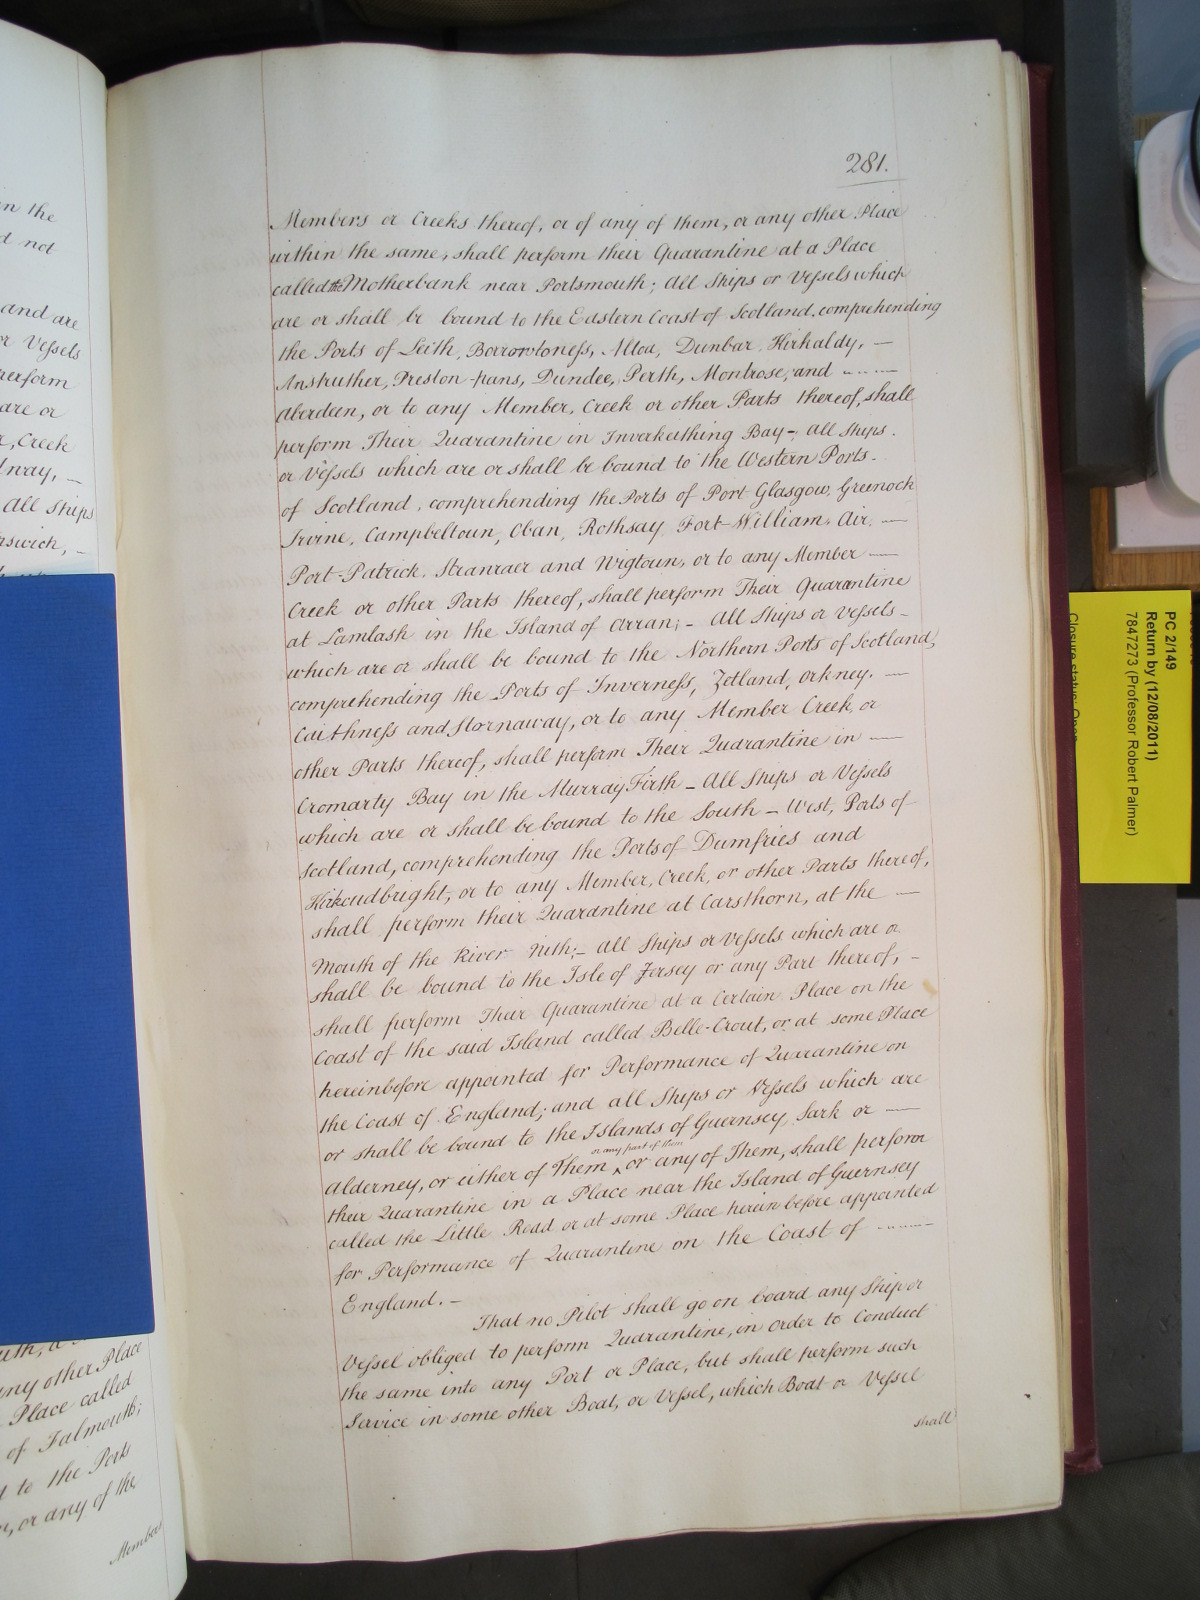 in the
d not
and are
or Vessels
perform
are or
r, Creek
dway, –
All Ships
nswich, –
any other Place
Place called
of Falmouth;
to the Ports
or any of the
Members
281.
Members or Creeks thereof, or of any of them, or any other Place
within the same, shall perform their Quarantine at a Place
called the Motherbank near Portsmouth; All Ships or Vessels which
are or shall be bound to the Eastern Coast of Scotland, comprehending
the Ports of Leith, Borrowtoness, Alloa, Dunbar, Kirkaldy, —
Anstruther, Preston-pans, Dundee, Perth, Montrose, and -----
Aberdeen, or to any Member, Creek or other Parts thereof, shall
perform Their Quarantine in Inverkeithing Bay–, All Ships.
or Vessels which are or shall be bound to the Western Ports–
of Scotland, comprehending the Ports of Port Glasgow, Greenock
Irvine, Campbeltoun, Oban, Rothsay, Fort-William, Air, —
Port-Patrick, Stranraer and Wigtoun, or to any Member —
Creek or other Parts thereof, shall perform Their Quarantine
at Lamlash in the Island of Arran;– All Ships or Vessels–
which are or shall be bound to the Northern Ports of Scotland,
comprehending the Ports of Inverness, Zetland, Orkney, —
Caithness and Stornaway, or to any Member Creek, or
other Parts thereof, shall perform Their Quarantine in —
Cromarty Bay in the Murray Firth – All Ships or Vessels
which are or shall be bound to the South – West, Ports of
Scotland, comprehending the Ports of Dumfries and
Kirkcudbright, or to any Member, Creek, or other Parts thereof,
shall perform their Quarantine at Carsthorn, at the —
Mouth of the River Nith;– All Ships or Vessels which are or
shall be bound to the Isle of Jersey or any Part thereof, –
shall perform Their Quarantine at a Certain Place on the
Coast of the said Island called Belle-Crout, or at some Place
hereinbefore appointed for Performance of Quarantine on
the Coast of England; and all Ships or Vessels which are
or shall be bound to the Islands of Guernsey, Sark or —
or any part of them
Alderney, or either of Them ‸ or any of Them, shall perform
their Quarantine in a Place near the Island of Guernsey
called the Little Road or at some Place herein before appointed
for Performance of Quarantine on the Coast of -------
England. –
That no Pilot shall go on board any Ship or
Vessel obliged to perform Quarantine, in order to Conduct
the same into any Port or Place, but shall perform such
Service in some other Boat, or Vessel, which Boat or Vessel
shall
PC 2/149
Return by (12/08/2011)
7847273 (Professor Robert Palmer)
Closure status: Open